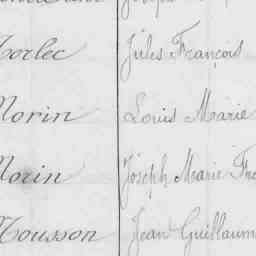 Jules François
Morin Louis Marie
Morin Joseph Marie
Mousson Jean Guillaum